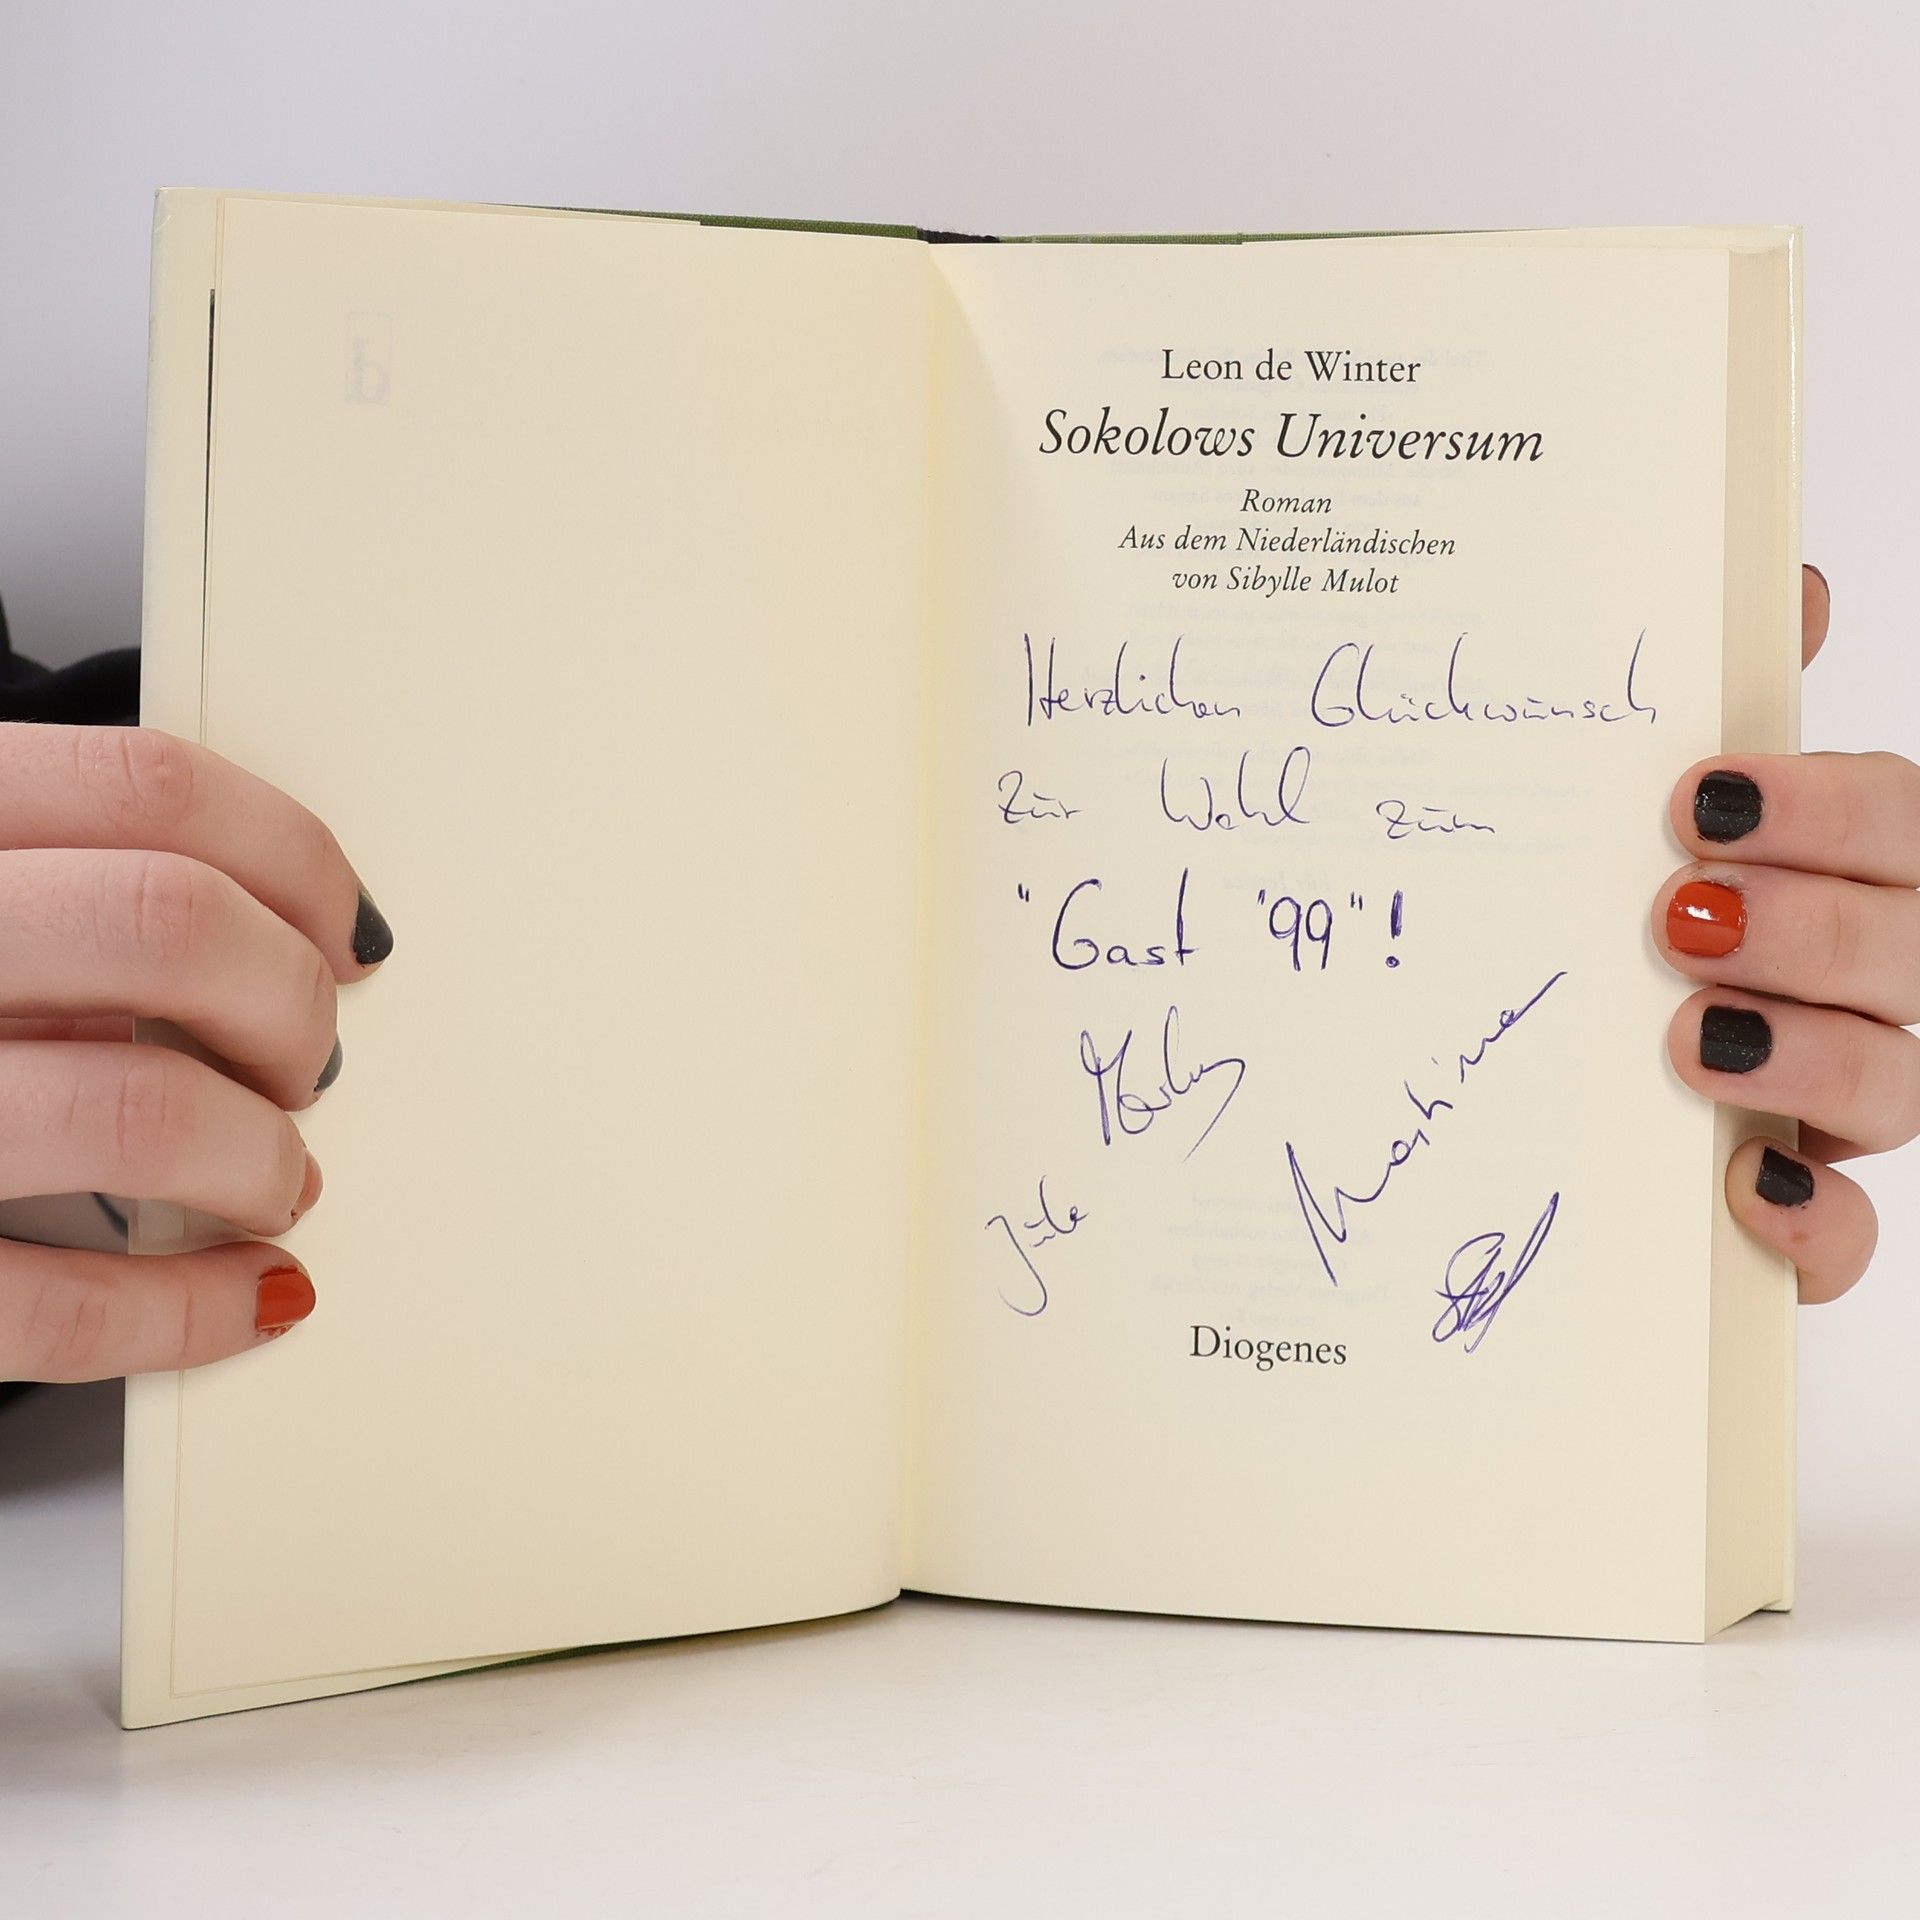 Leon de Winter
Sokolows Universum
Roman
Aus dem Niederländischen
von Sibylle Mulot
Herzlichen Glückwunsch
zur Wahl zum
"Gast '99"!
Markus
Martina
Jule
Diogenes